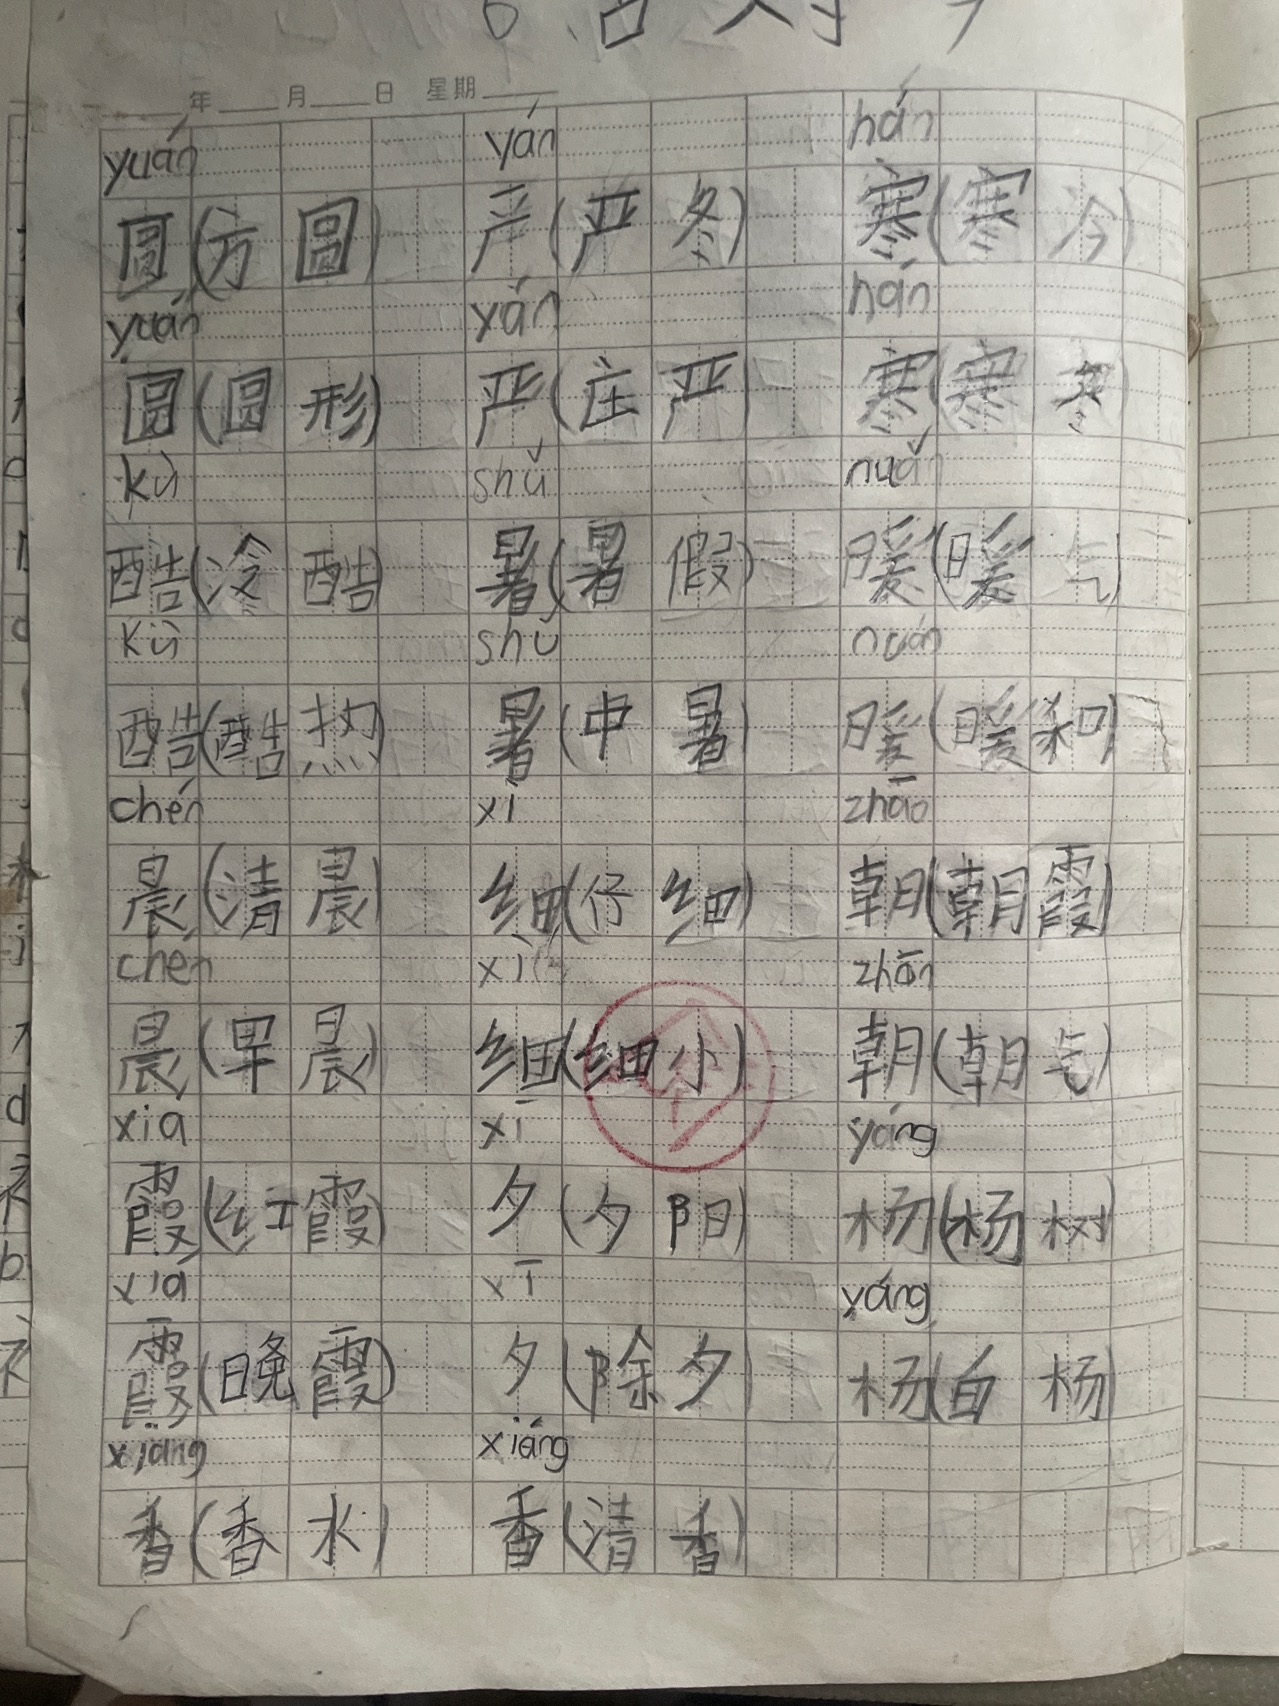 年 月 日 星期
yuán yán hán
圆(方圆) 严(严冬) 寒(寒冷)
yuán yán hán
圆(圆形) 严(庄严) 寒(寒冬)
kù shǔ nuǎn
酷(冷酷) 暑(暑假) 暖(暖气)
kù shǔ nuǎn
酷(酷热) 暑(中暑) 暖(暖和)
chén xì zhāo
晨(清晨) 细(仔细) 朝(朝霞)
chén xì zhāo
晨(早晨) 细(细小) 朝(朝气)
xia xī yáng
霞(红霞) 夕(夕阳) 杨(杨树)
xiá xī yáng
霞(晚霞) 夕(除夕) 杨(白杨)
xiang xiáng
香(香水) 香(清香)